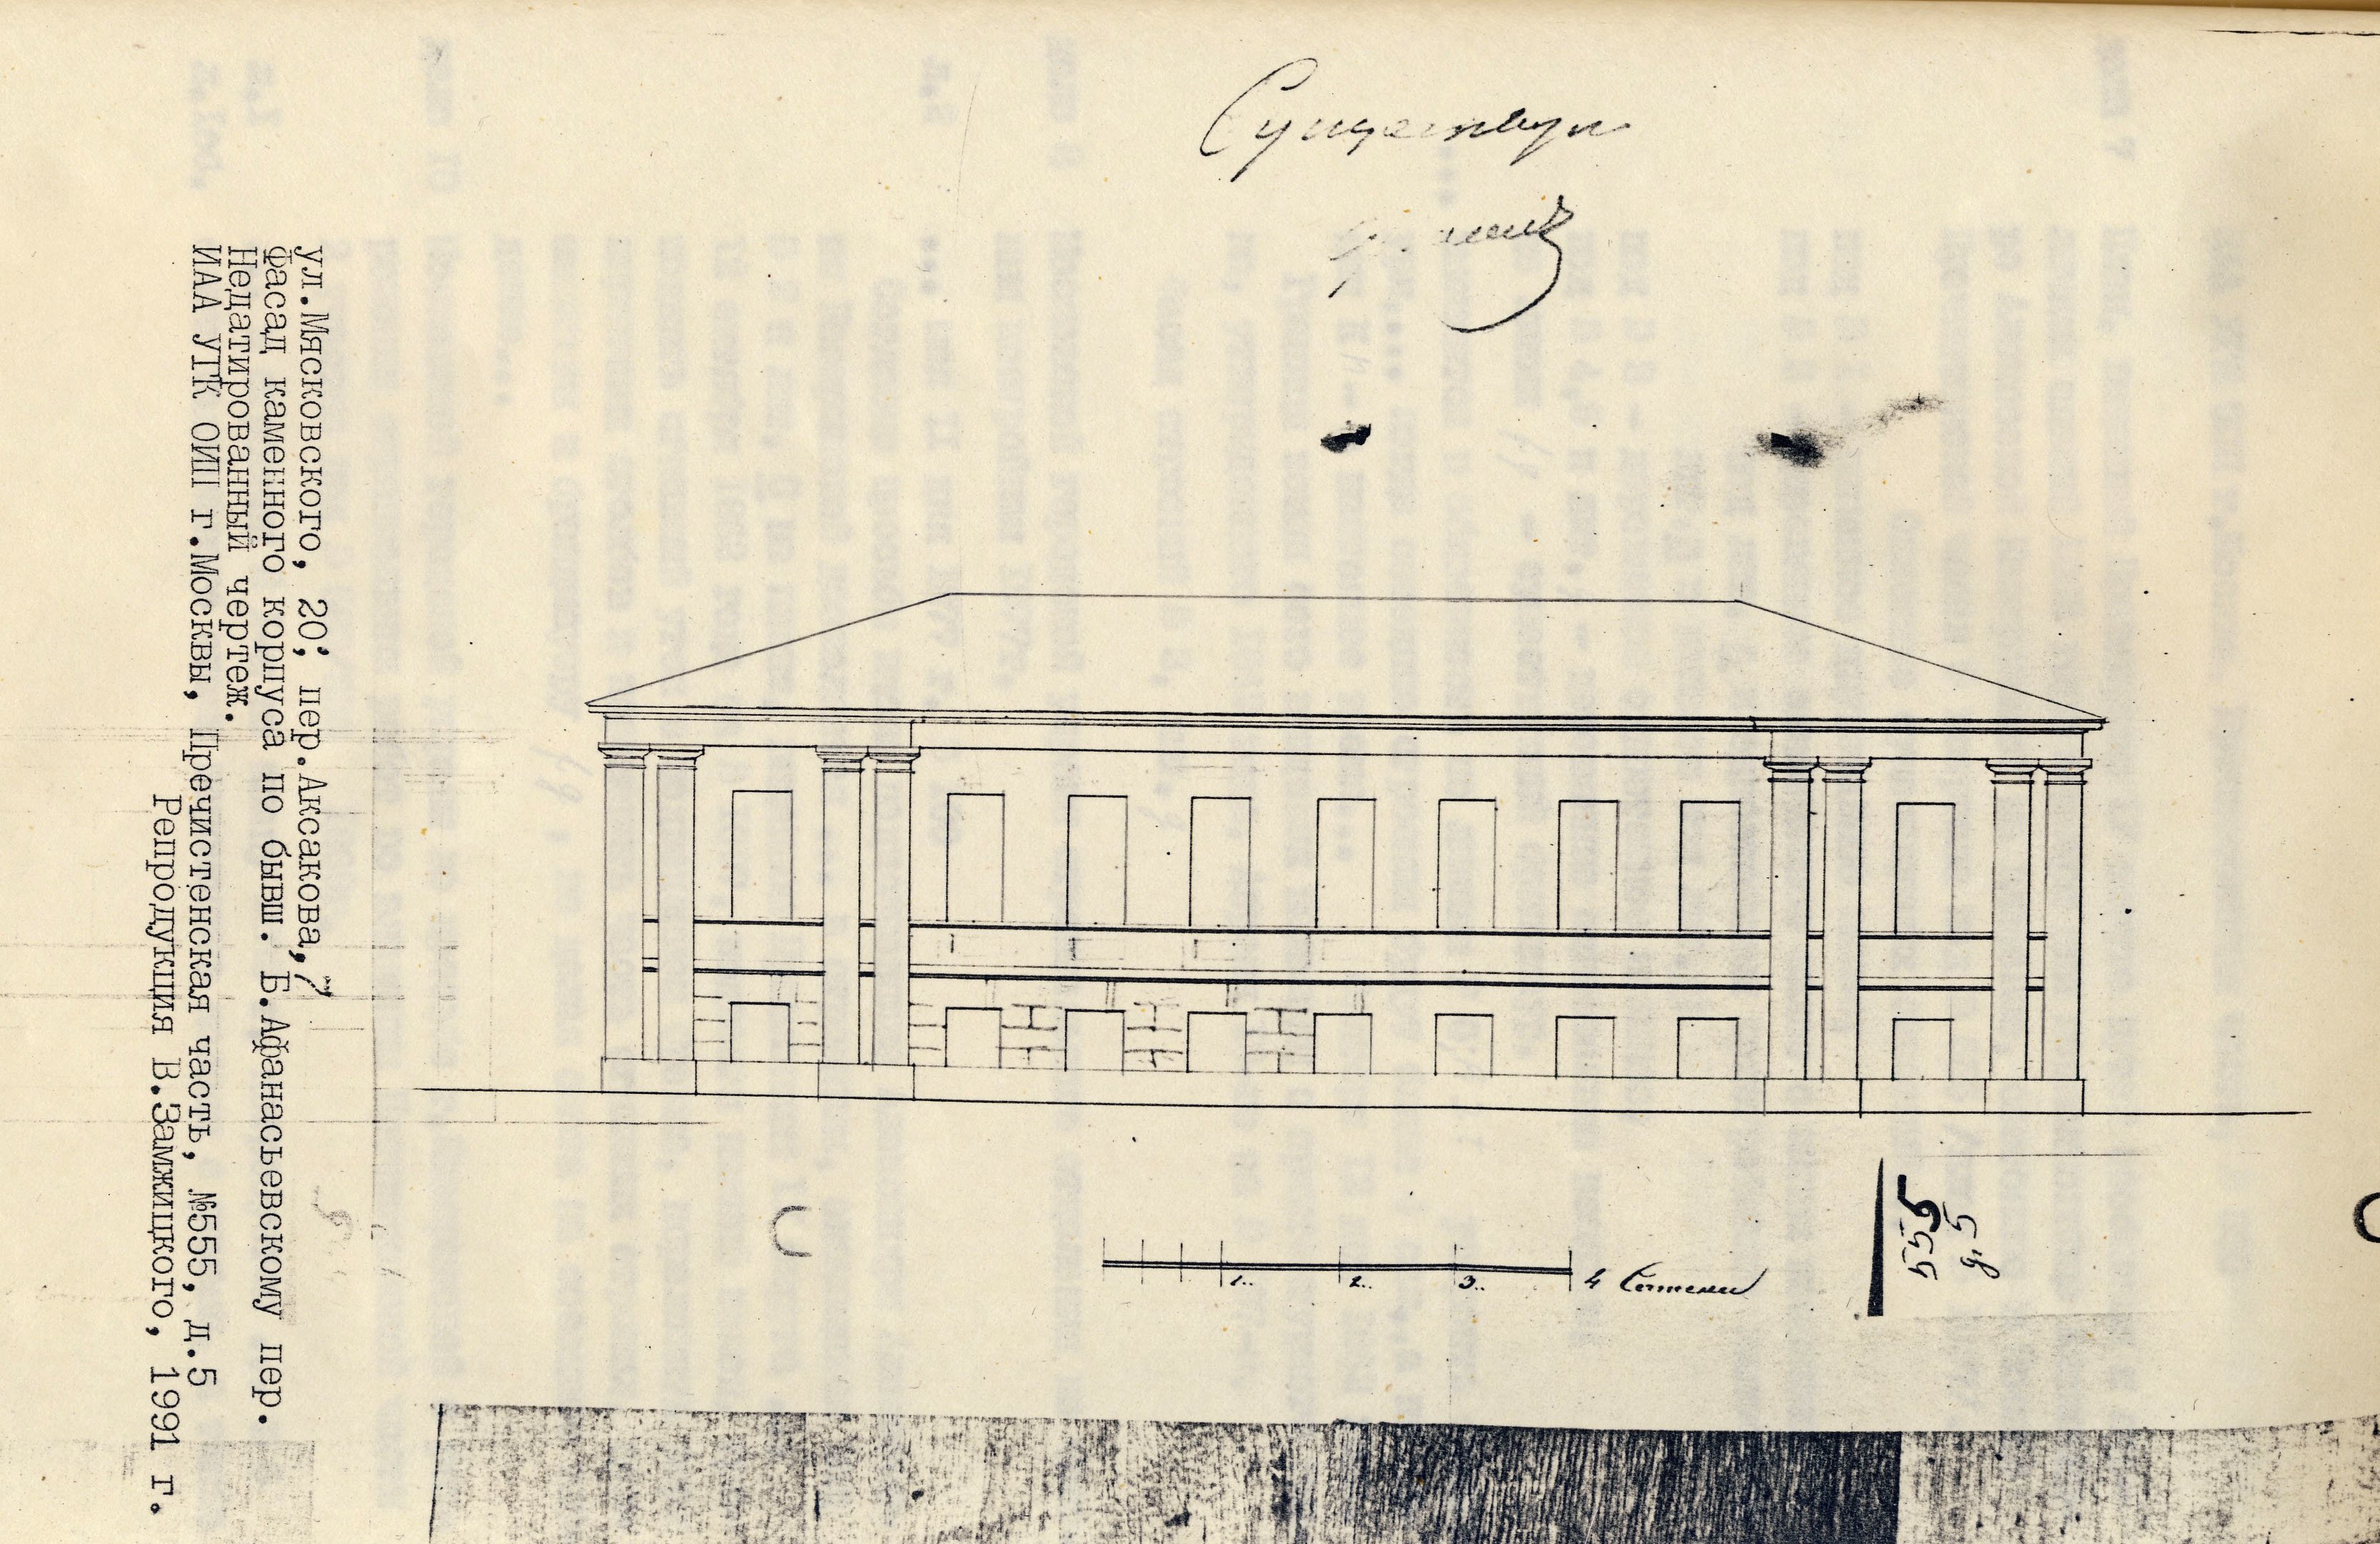 Существую
ул.Мясковского, 20; пер.Аксакова, 7
Фасад каменного корпуса по бывш. Б.Афанасьевскому пер.
Недатированный чертеж.
ИАА УГК ОИП г.Москвы, Пречистенская часть, №555, д.5
Репродукция В.Замжицкого, 1991 г.
1.. 2.. 3.. 4 Сотени
555
д.5